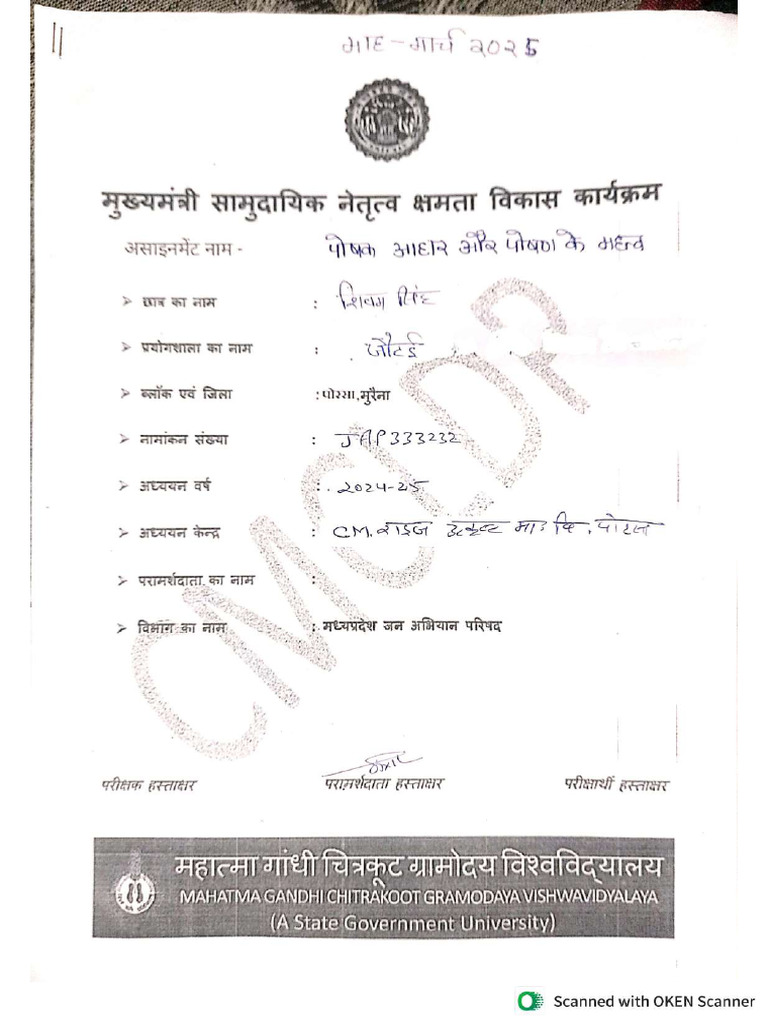 11
माह - मार्च 2025
मुख्यमंत्री सामुदायिक नेतृत्व क्षमता विकास कार्यक्रम
असाइनमेंट नाम - पोषक आहार और पोषण के महत्व
➢ छात्र का नाम : शिवम सिंह
➢ प्रयोगशाला का नाम : जौटई
➢ ब्लॉक एवं जिला : पोरसा,मुरैना
➢ नामांकन संख्या : JAP333232
➢ अध्ययन वर्ष : 2024-25
➢ अध्ययन केन्द्र : CM. राइज उत्कृष्ट मा. वि. पोरसा
➢ परामर्शदाता का नाम :
➢ विभाग का नाम : मध्यप्रदेश जन अभियान परिषद
CMCLDP
परीक्षक हस्ताक्षर परामर्शदाता हस्ताक्षर परीक्षार्थी हस्ताक्षर
महात्मा गांधी चित्रकूट ग्रामोदय विश्वविद्यालय
MAHATMA GANDHI CHITRAKOOT GRAMODAYA VISHWAVIDYALAYA
(A State Government University)
Scanned with OKEN Scanner